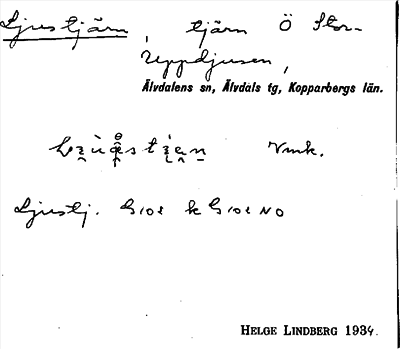 Ljustjärn, tjärn Ö Stor-
Uppdjusen,
Älvdalens sn, Älvdals tg, Kopparbergs län.
Vmk.
Ljustj. G 101 k G 101 NO
HELGE LINDBERG 1934.